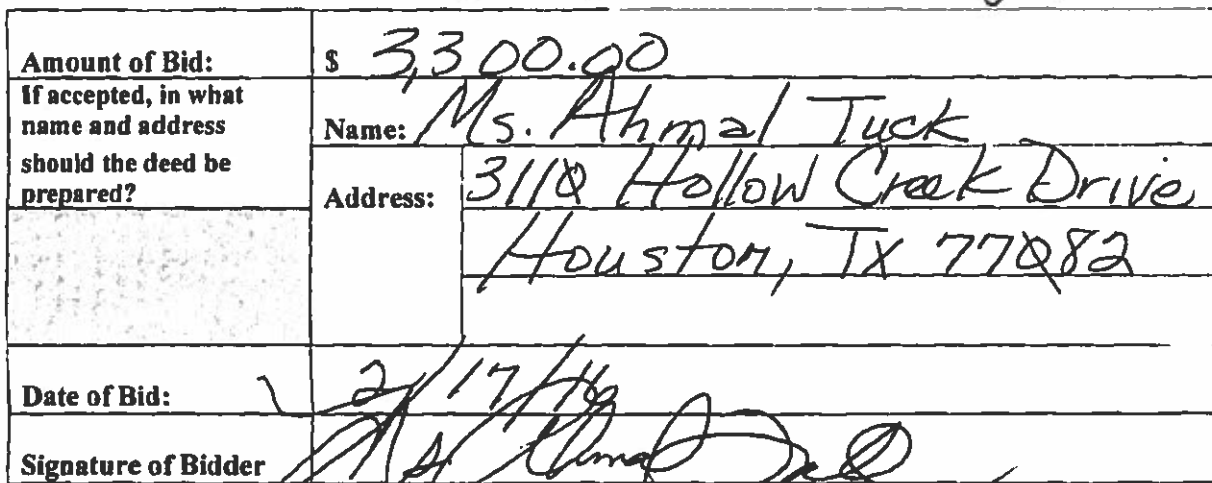 Amount of Bid: $ 3,300.00
If accepted, in what
name and address
should the deed be
prepared?
Name: Ms. Ahmal Tuck
Address: 3110 Hollow Creek Drive
Houston, TX 77082
Date of Bid: 2/17/16
Signature of Bidder Ms. Ahmal Tuck